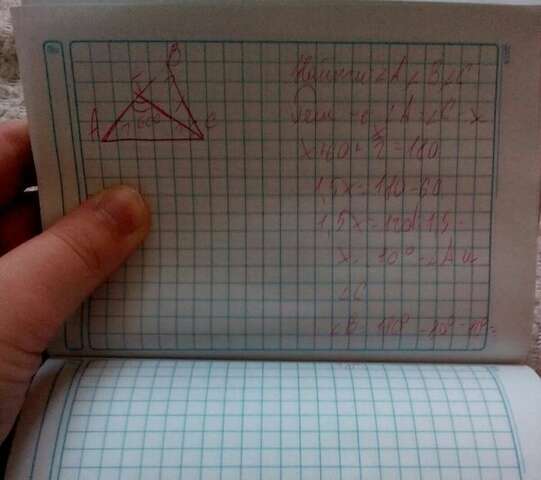 B
A
60°
C
Найти ∠A ∠B ∠C
∠A ∠C x
x+60+x/2=180
1,5x=180-60
1,5x=120:1,5
x 0°=∠A и
∠C
∠B 180° -80°